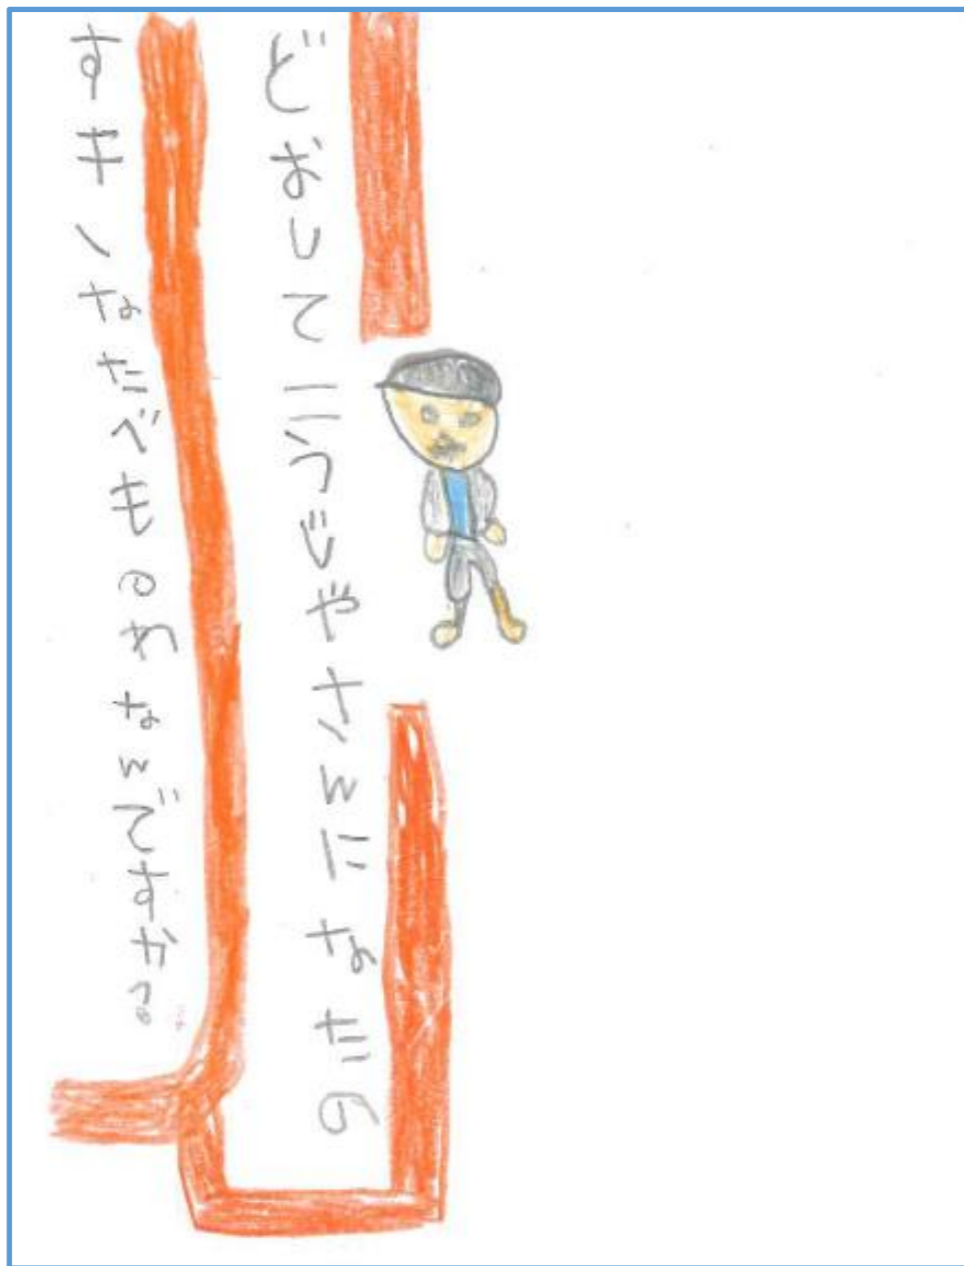 どおしてこうじやさんになたの
すきなたべものわなんですか？